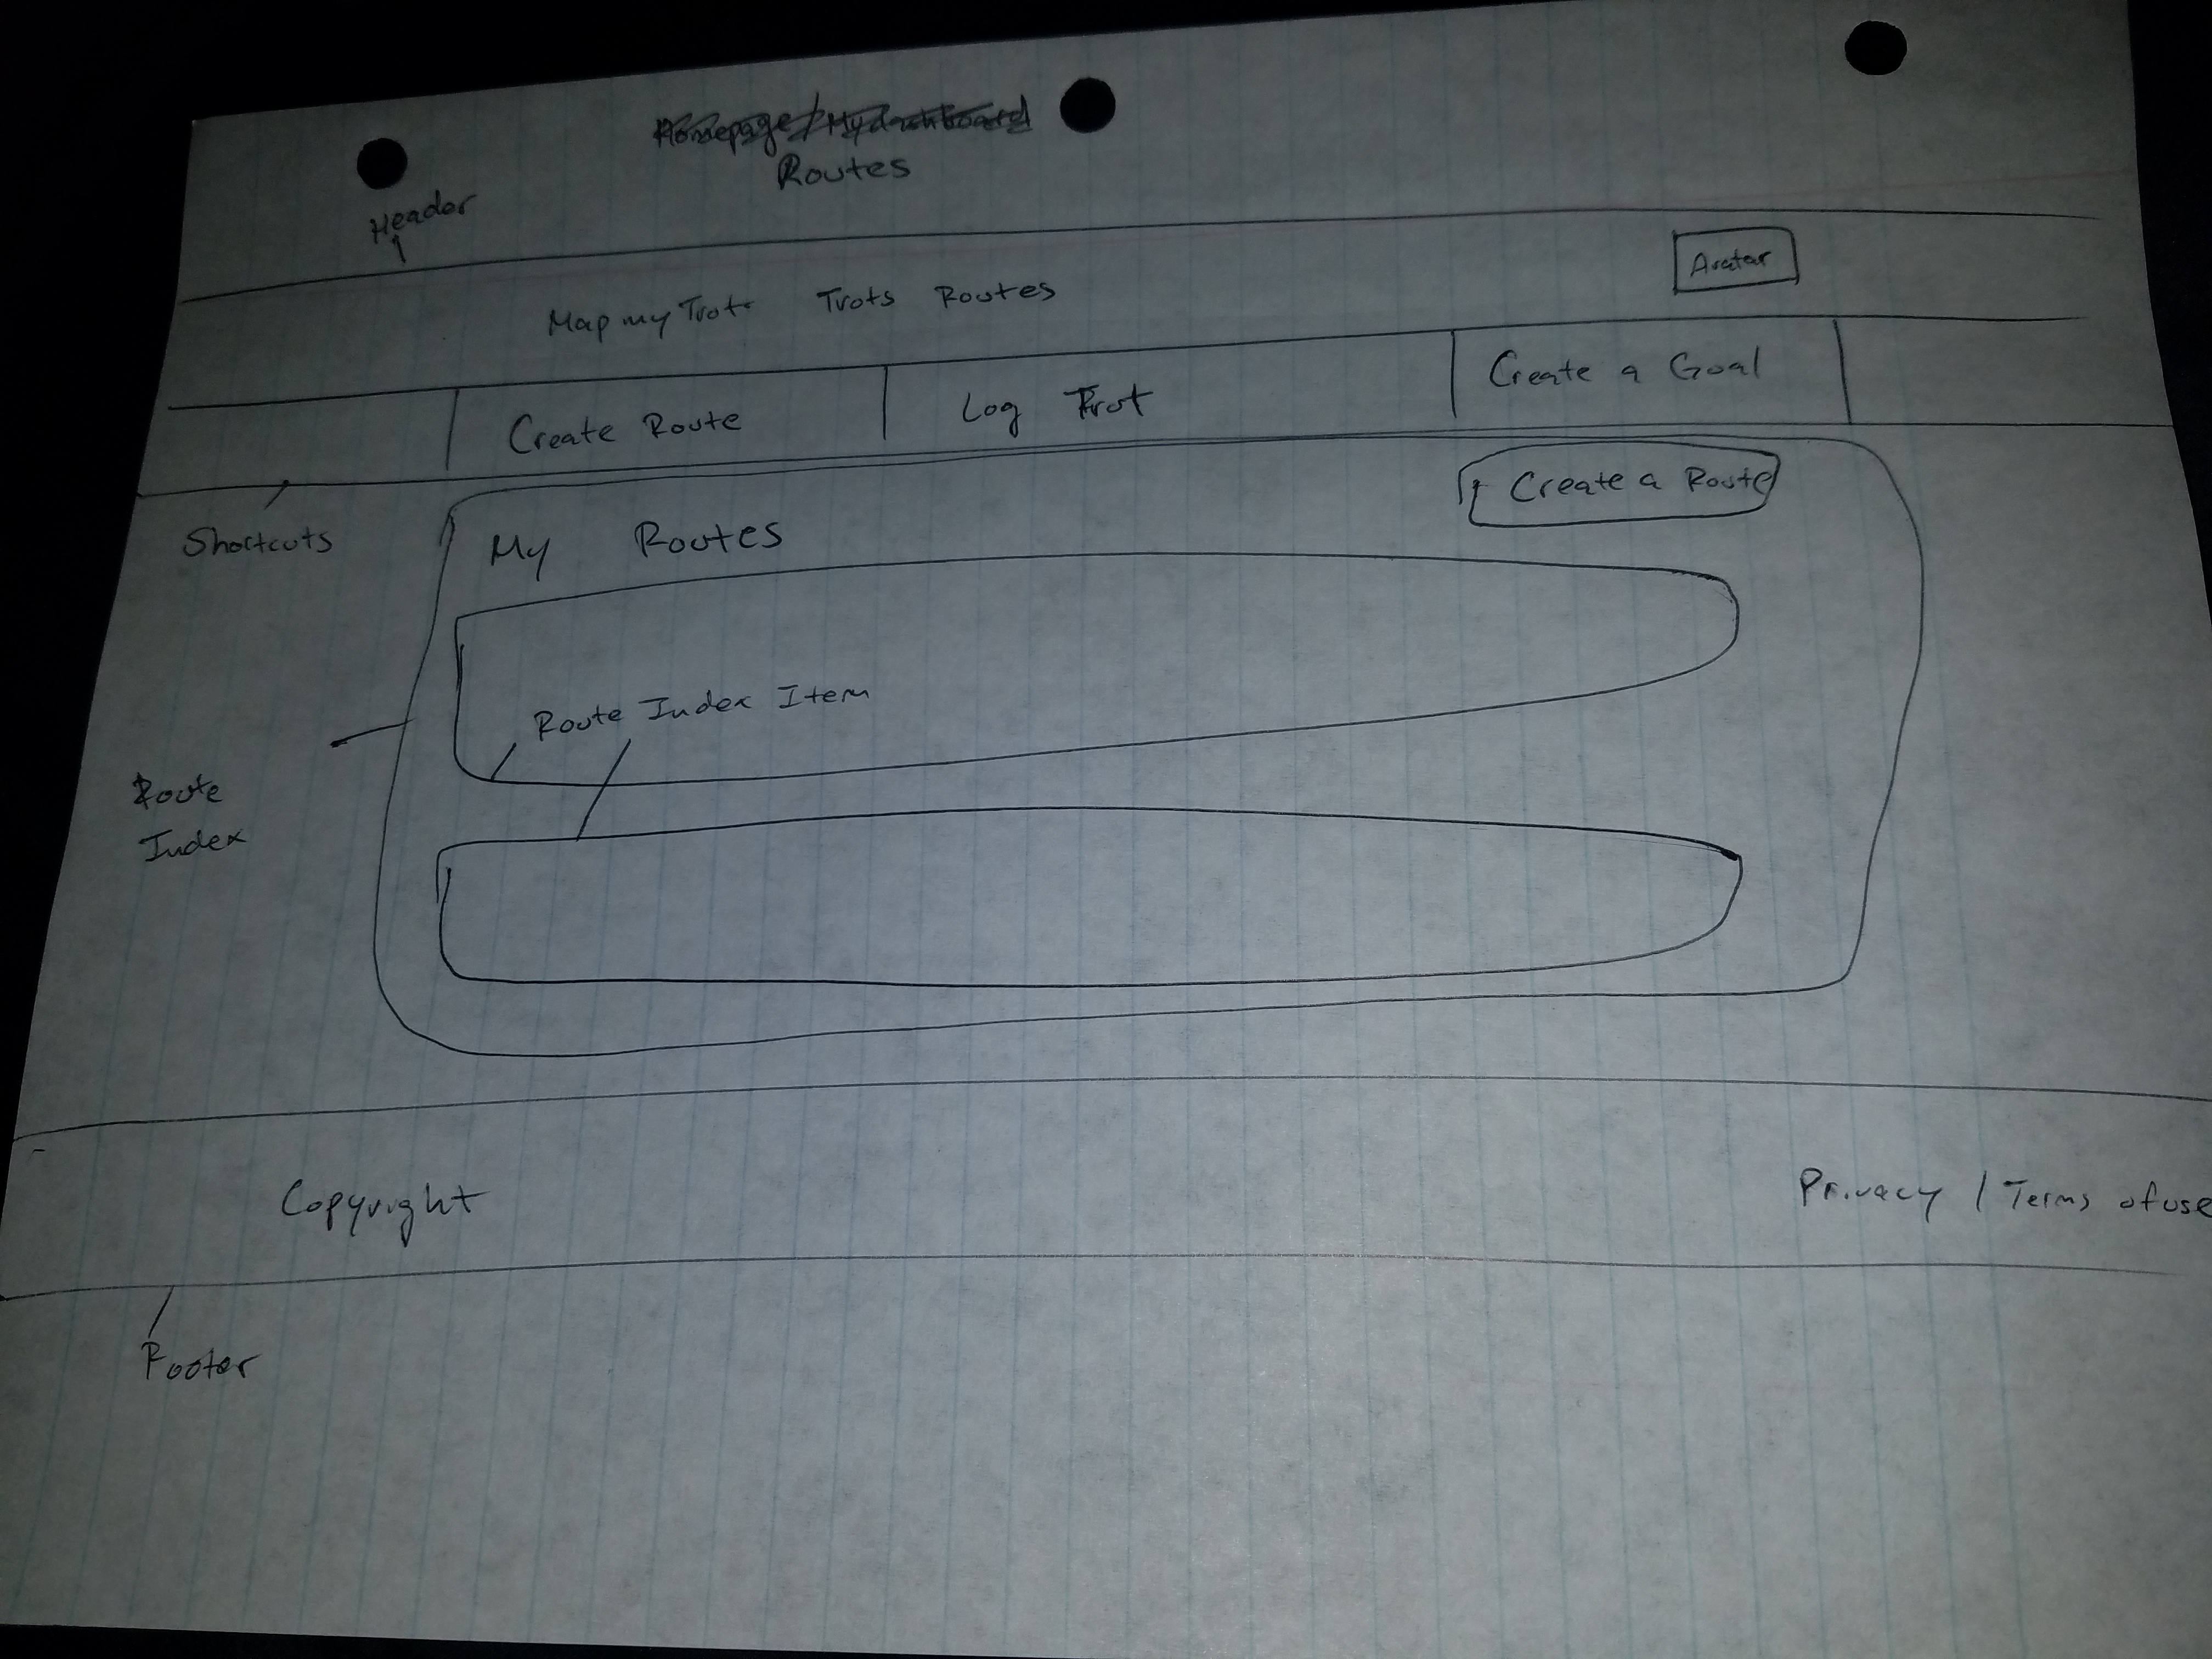 Homepage/MyDashboard
Routes
Header
Map my Trots Trots Routes Avatar
Create Route Log Trot Create a Goal
Shortcuts
My Routes + Create a Route
Route
Index
Route Index Item
Copyright Privacy / Terms of use
Footer